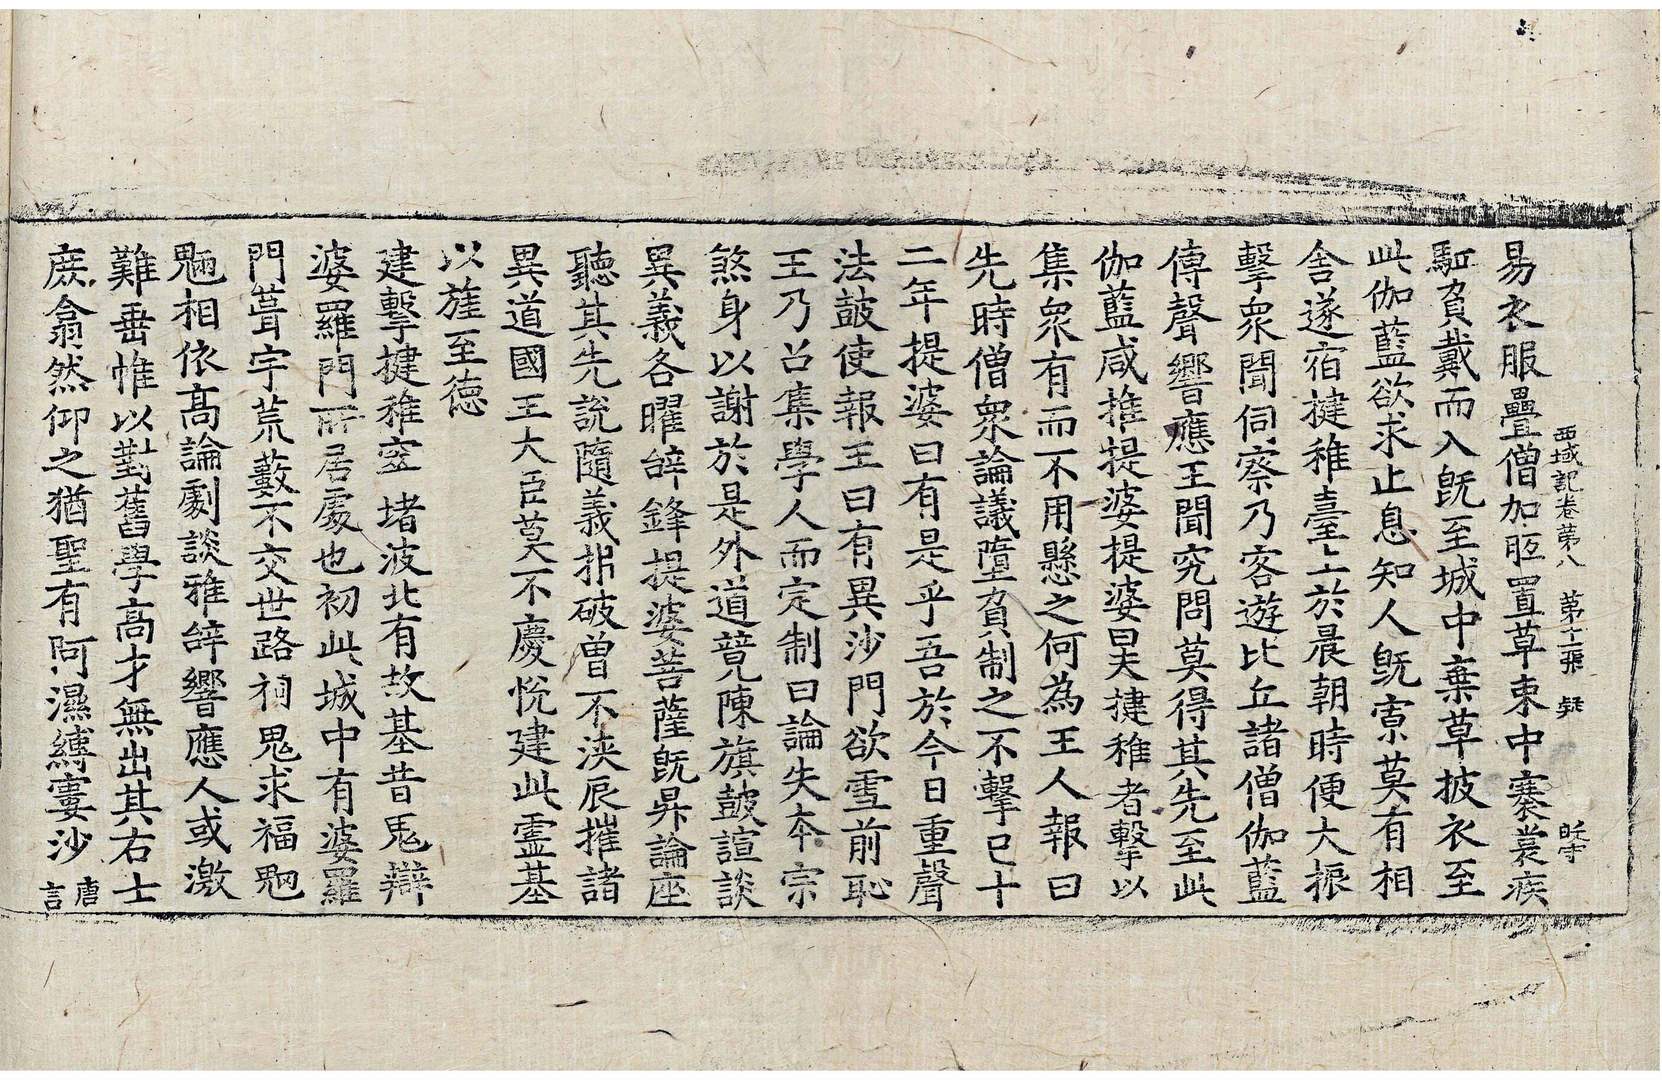 西域記卷第八 第十二張 疑
易衣服疊僧加胝置草束中褰裳疾
駈負戴而入旣至城中棄草披衣至
此伽藍欲求止息知人旣寡莫有相
舍遂宿揵稚臺上於晨朝時便大振
擊衆聞伺察乃客遊比丘諸僧伽藍
傳聲響應王聞究問莫得其先至此
伽藍咸推提婆提婆曰夫揵稚者擊以
集衆有而不用懸之何為王人報曰
先時僧衆論議墮負制之不擊已十
二年提婆曰有是乎吾於今日重聲
法鼓使報王曰有異沙門欲雪前恥
王乃召集學人而定制曰論失本宗
煞身以謝於是外道競陳旗鼓諠談
異義各曜辞鋒提婆菩薩旣昇論座
聽其先說隨義折破曾不浹辰摧諸
異道國王大臣莫不慶悅建此靈基
以旌至德
建擊揵稚窣堵波北有故基昔鬼辯
婆羅門所居處也初此城中有婆羅
門葺宇荒藪不交世路祠鬼求福魍
魎相依高論劇談雅辞響應人或激
難垂惟以對舊學高才無出其右士
庶翕然仰之猶聖有阿濕縛窶沙唐言